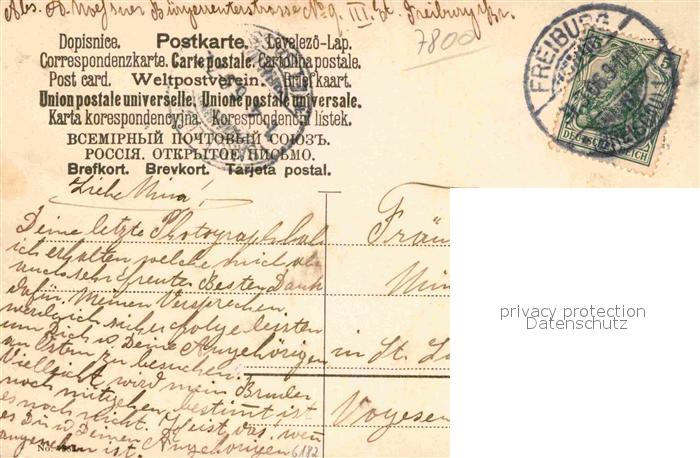 Bürgerwehrstrasse No 9. III. St. Freiburg Br.
7800
Dopisnice. Postkarte. Levelező-Lap.
Correspondenzkarte. Carte postale. Cartolina postale.
Post card. Weltpostverein. Briefkaart.
Union postale universelle. Unione postale universale.
Karta korespondencyjna. Korespondenčni listek.
ВСЕМІРНЫЙ ПОЧТОВЫЙ СОЮЗЪ.
РОССІЯ. ОТКРЫТОЕ ПИСЬМО.
Brefkort. Brevkort. Tarjeta postal.
FREIBURG
5
DEUTSCHES REICH
Liebe
Deine letzte Photographikal
ich erhalten welche mich
auch sehr freute. Besten Dank
dafür. Meinen Versprechen
werde ich sicher folge leisten
um Dich u. Deine Angehörigen
an Ostern zu besuchen.
Vielleicht wird mein Bruder
noch mitgehen, bestimmt ist
es noch nicht.
es Dir u. Deinen Angehörigen
angenehm ist.
Fräu
in St.
Vogesen
privacy protection
Datenschutz
No.
6182